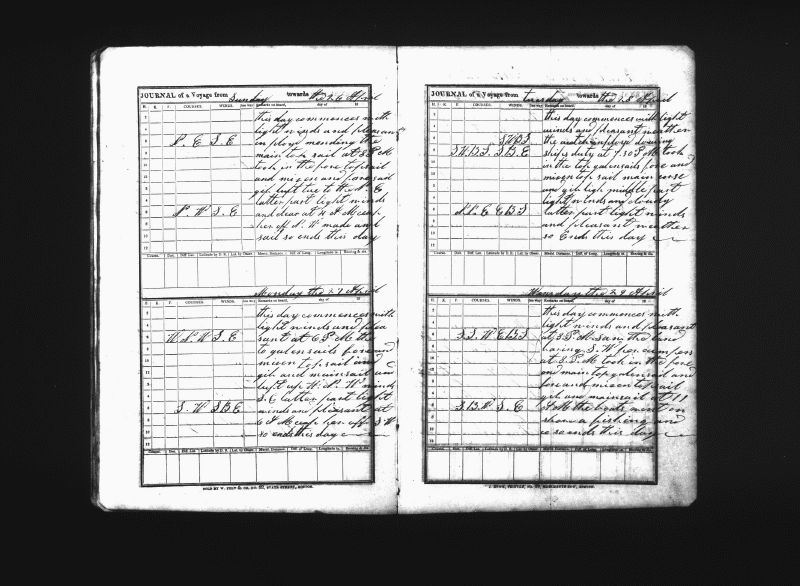 JOURNAL of a Voyage from Sunday towards the 26 April
H. K. F. COURSES. WINDS. Remarks on board, day of 18
this day commences with
light winds and pleasant
N. E S. E
imployd mending the
main top sail at 8 P M
took in the fore top sail
and mizen and fore
gib luft tue to the N. E
latter part light winds
N. W S. E
and clear at 4 A M
her off N. W made and
sail so ends this day
Course. Dist. Diff Lat. Latitude by D. R. Lat. by Obser. Merid. Distance. Diff of Long. Longitude in.
Monday the 27 April
H. K. F. COURSES. WINDS. Remarks on board, day of 18
this day commences with
light winds and plea
W N. W S. E
sant at 6 P M the
to galensails fore and
mizen top sail
gib and mainsail and
luft up N. W winds
S. E latter part light
S. W S B E
winds and pleasant at
6 A M off S W
so ends this day
Course. Dist. Diff Lat. Latitude by D. R. Lat. by Obser. Merid. Distance. Diff of Long. Longitude in.
SOLD BY STATE STREET, BOSTON.
JOURNAL of a Voyage from tuesday towards the 28 April
H. K. F. COURSES. WINDS. Remarks on board, day of 18
this day commences with light
winds and pleasant weather
S W B S
the watch imployd dowing
S. W. B. S S. B. E
ships duty at 7.30 P M took
in the top galensails fore and
mizen top sail main corse
and gib middle part
light winds and cloudy
E B S
latter part light winds
and pleasant weather
so Ends this day
Course. Dist. Diff Lat. Latitude by D. R. Lat. by Obser. Merid. Distance. Diff of Long. Longitude in.
the 29 April
H. K. F. COURSES. WINDS. Remarks on board, day of 18
this day commences with
light winds and pleasant
S. S. W E B S
at 3. P M. saw the land
baring S. W per compass
at 5. P M took in the fore
and main top galensail and
fore and mizen top sail
gib and mainsail at 11
S. B. W S. E
A M the boats went in
shore a fishing and
so ends this day
Course. Dist. Diff Lat. Latitude by D. R. Lat. by Obser. Merid. Distance. Diff of Long. Longitude in.
BOSTON.